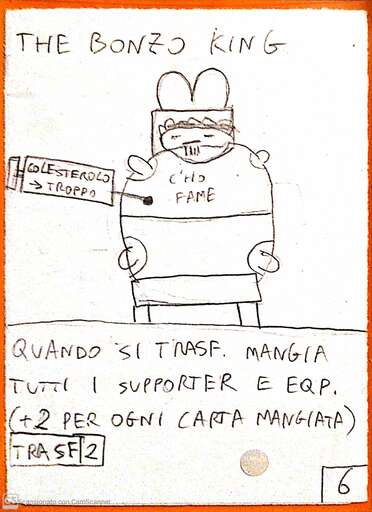 THE BONZO KING
COLESTEROLO
→ TROPPO
C'HO
FAME
QUANDO SI TRASF. MANGIA
TUTTI I SUPPORTER E EQP.
(+2 PER OGNI CARTA MANGIATA)
TRASF 2
6
CS Scansionato con CamScanner